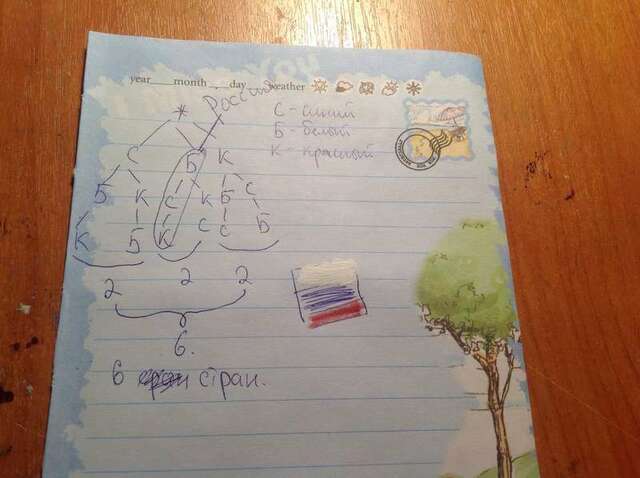 year month day weather
Россия
* С - синий
Б - белый
К - красный
С Б К
Б К С К Б С
К Б К С С Б
2 2 2
6.
6 стран.